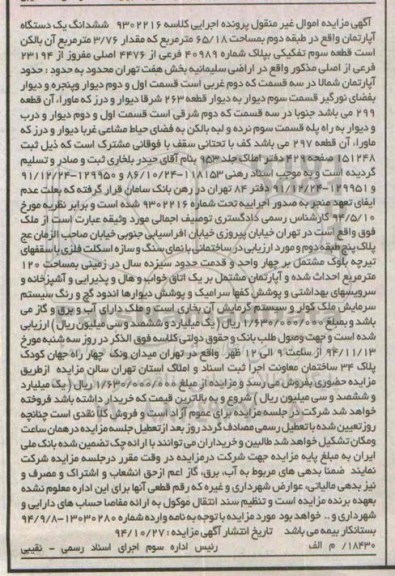 آگهی مزایده اموال غیر منقول پرونده اجرایی کلاسه ۹۳۰۲۲۱۶ ششدانگ یک دستگاه
آپارتمان واقع در طبقه دوم بمساحت ۶۵/۱۸ مترمربع که مقدار ۳/۷۶ مترمربع آن بالکن
است قطعه سوم تفکیکی بپلاک شماره ۴۰۹۸۹ فرعی از ۴۴۷۶ اصلی مفروز از ۲۳۱۹۴
فرعی از اصلی مذکور واقع در اراضی سلیمانیه بخش هفت تهران محدود به حدود : حدود
آپارتمان شمالا در سه قسمت که دوم غربی است قسمت اول و دوم دیوار وپنجره و دیوار
بفضای نورگیر قسمت سوم دیوار به دیوار قطعه ۲۶۳ شرقا دیوار و درز که ماوراء آن قطعه
۲۹۹ می باشد جنوبا در سه قسمت که دوم شرقی است قسمت اول و دوم دیوار و درب
و دیوار به راه پله قسمت سوم نرده و لبه بالکن به فضای حیاط مشاعی غربا دیوار و درز که
ماوراء آن قطعه ۲۹۷ می باشد کف با تحتانی سقف با فوقانی مشترک است که ذیل ثبت
۱۵۱۲۴۸ صفحه ۴۲۱ دفتر املاک جلد ۹۵۳ بنام آقای حیدر بلخاری ثبت و صادر و تسلیم
گردیده است و به موجب اسناد رهنی ۱۱۸۱۵۳-۸۶/۱۰/۲۴ و ۱۲۹۹۵۰-۹۱/۱۲/۲۴
و ۱۲۹۹۵۱-۹۱/۱۲/۲۴ دفتر ۸۴ تهران در رهن بانک سامان قرار گرفته که بعلت عدم
ایفای تعهد منجر به صدور اجراییه تحت شماره ۹۳۰۲۲۱۶ شده است و برابر نظریه مورخ
۹۴/۵/۱۰ کارشناس رسمی دادگستری توصیف اجمالی مورد وثیقه عبارت است از ملک
فوق واقع است در تهران خیابان پیروزی خیابان افراسیابی جنوبی خیابان صاحب الزمان عج
پلاک پنج طبقه دوم و مورد ارزیابی در ساختمانی با نمای سنگ و سازه اسکلت فلزی با سقفهای
تیرچه بلوک مشتمل بر چهار واحد و قدمت حدود سیزده سال در زمینی بمساحت ۱۲۰
مترمربع احداث شده و آپارتمان مشتمل بر یک اتاق خواب و هال و پذیرایی و آشپزخانه و
سرویسهای بهداشتی و پوشش کفها سرامیک و پوشش دیوارها اندود گچ و رنگ سیستم
سرمایش ملک کولر و سیستم گرمایش آن بخاری است و ملک دارای آب و برق و گاز می
باشد و بمبلغ ۱/۶۳۰/۰۰۰/۰۰۰ ریال (یک میلیارد و ششصد و سی میلیون ریال) ارزیابی
شده است و جهت وصول طلب بانک و حقوق دولتی کلاسه فوق الذکر در روز سه شنبه مورخ
۹۴/۱۱/۱۳ از ساعت ۹ الی ۱۲ ظهر واقع در تهران میدان ونک چهار راه جهان کودک
پلاک ۳۴ ساختمان معاونت اجرا ثبت اسناد و املاک استان تهران سالن مزایده ازطریق
مزایده حضوری بفروش می رسد و مزایده از مبلغ ۱/۶۳۰/۰۰۰/۰۰۰ ریال (یک میلیارد
و ششصد و سی میلیون ریال) شروع و به بالاترین قیمت که خریدار داشته باشد فروخته
خواهد شد شرکت در جلسه مزایده برای عموم آزاد است و فروش کلا نقدی است چنانچه
روز تعیین شده با تعطیل رسمی مصادف گردد روز بعد از تعطیل جلسه مزایده در همان ساعت
ومکان تشکیل خواهد شد طالبین و خریداران می توانند با ارائه چک تضمین شده بانک ملی
ایران به مبلغ پایه مزایده جهت شرکت درمزایده در وقت مقرر درجلسه مزایده شرکت
نمایند ضمنا بدهی های مربوط به آب، برق، گاز اعم ازحق انشعاب و اشتراک و مصرف و
نیز بدهی مالیاتی، عوارض شهرداری و غیره که رقم قطعی آنها برای این اداره معلوم نشده
بعهده برنده مزایده است و تنظیم سند انتقال موکول به ارائه مفاصا حساب های دارایی و
شهرداری و .. خواهد بود مورد مزایده با توجه به نامه وارده شماره ۱۳۰۳۰۲۸۰-۹۴/۹/۸
بستانکار بیمه می باشد تاریخ انتشار آگهی مزایده: ۹۴/۱۰/۲۷
۱۸۴۳۰/ م الف رئیس اداره سوم اجرای اسناد رسمی - نقیبی